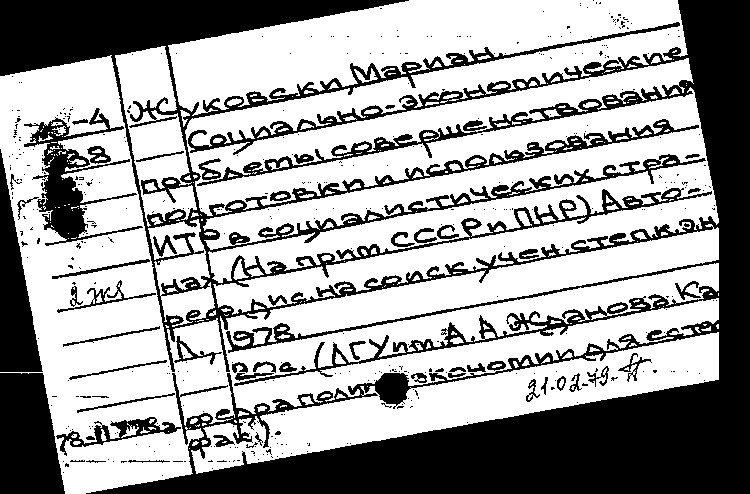 Жуковски, Мариан.
Социально-экономические
проблемы совершенствования
подготовки и использования
ИТР в социалистических стра-
нах. (На прим. СССР и ПНР). Авто-
реф. дис. на соиск. учен. степ. к. э. н.
Л., 1978.
20 с. (ЛГУ им. А. А. Жданова. Ка
федра полит экономии для есте
фак.).
2 жл
21.02.79.